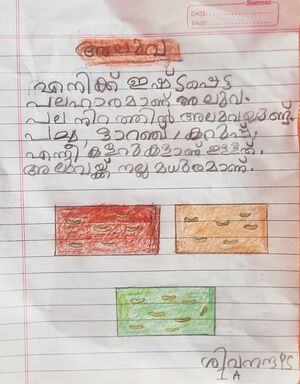 Success
DATE:
PAGE:
അലുവ
എനിക്ക് ഇഷ്ടപ്പെട്ട
പലഹാരമാണ് അലുവ.
പല നിറത്തിൽ അലുവയുണ്ട്.
പച്ച, ഓറഞ്ച്, കറുപ്പ്,
എന്നീ കളറുകളാണ് ഉള്ളത്.
അലുവയ്ക്ക് നല്ല മധുരമാണ്.
ശിവനന്ദ P S
1 A